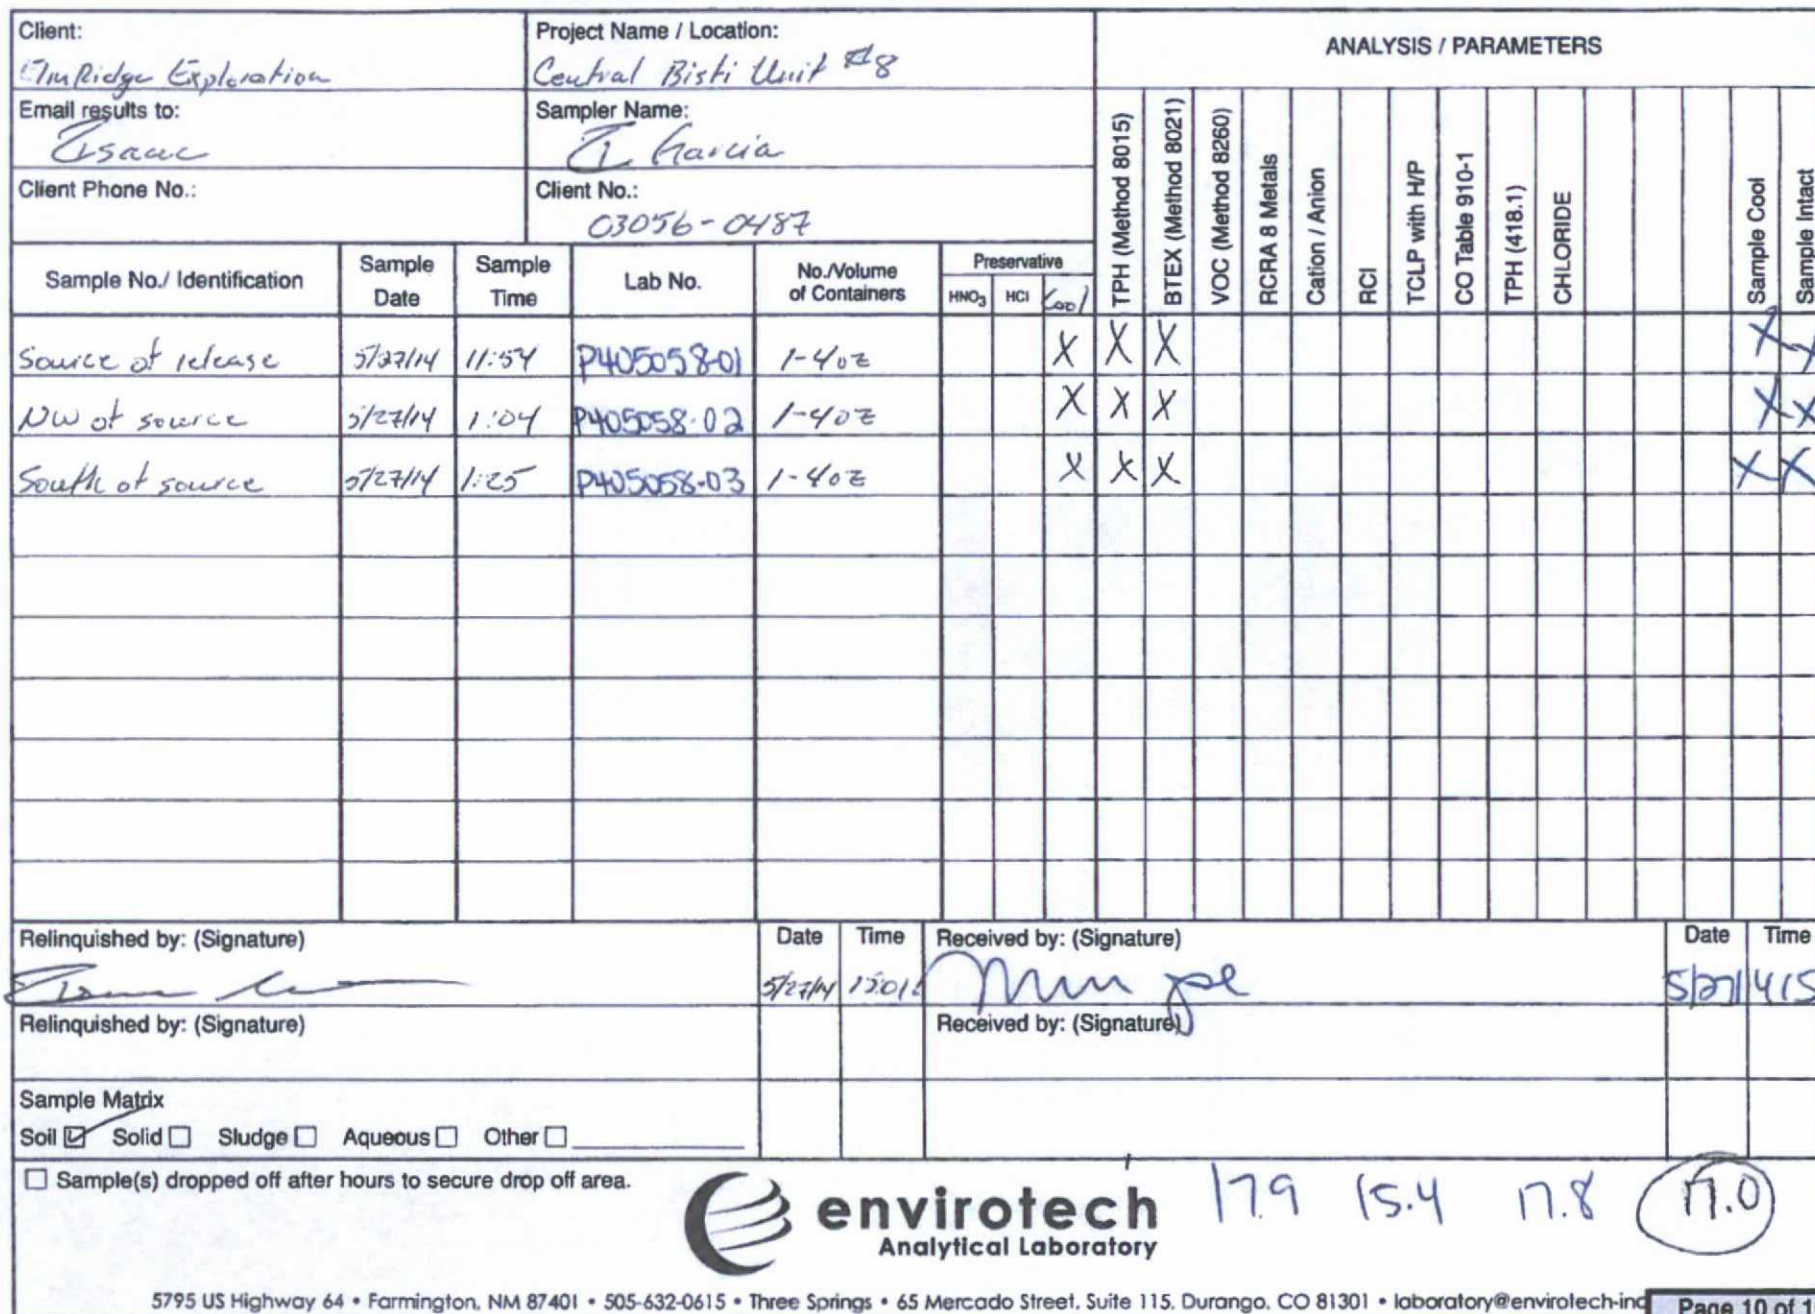 Client:
ElmRidge Exploration
Project Name / Location:
Central Bisti Unit #8
ANALYSIS / PARAMETERS
Email results to:
Isaac
Sampler Name:
I. Garcia
Client Phone No.:
Client No.:
03056-0487
Sample No./ Identification
Sample Date
Sample Time
Lab No.
No./Volume of Containers
Preservative
HNO3 HCl Cool
TPH (Method 8015)
BTEX (Method 8021)
VOC (Method 8260)
RCRA 8 Metals
Cation / Anion
RCI
TCLP with H/P
CO Table 910-1
TPH (418.1)
CHLORIDE
Sample Cool
Sample Intact
Source of release 5/27/14 11:54 P405058-01 1-4oz X X X X X
NW of source 5/27/14 1:04 P405058-02 1-4oz X X X X X
South of source 5/27/14 1:25 P405058-03 1-4oz X X X X X
Relinquished by: (Signature) Date Time Received by: (Signature) Date Time
5/27/14 5/27/14 15
Relinquished by: (Signature) Received by: (Signature)
Sample Matrix
Soil Solid Sludge Aqueous Other
Sample(s) dropped off after hours to secure drop off area.
envirotech
Analytical Laboratory
17.9 15.4 17.8 17.0
5795 US Highway 64 • Farmington, NM 87401 • 505-632-0615 • Three Springs • 65 Mercado Street, Suite 115, Durango, CO 81301 • laboratory@envirotech-inc
Page 10 of 1